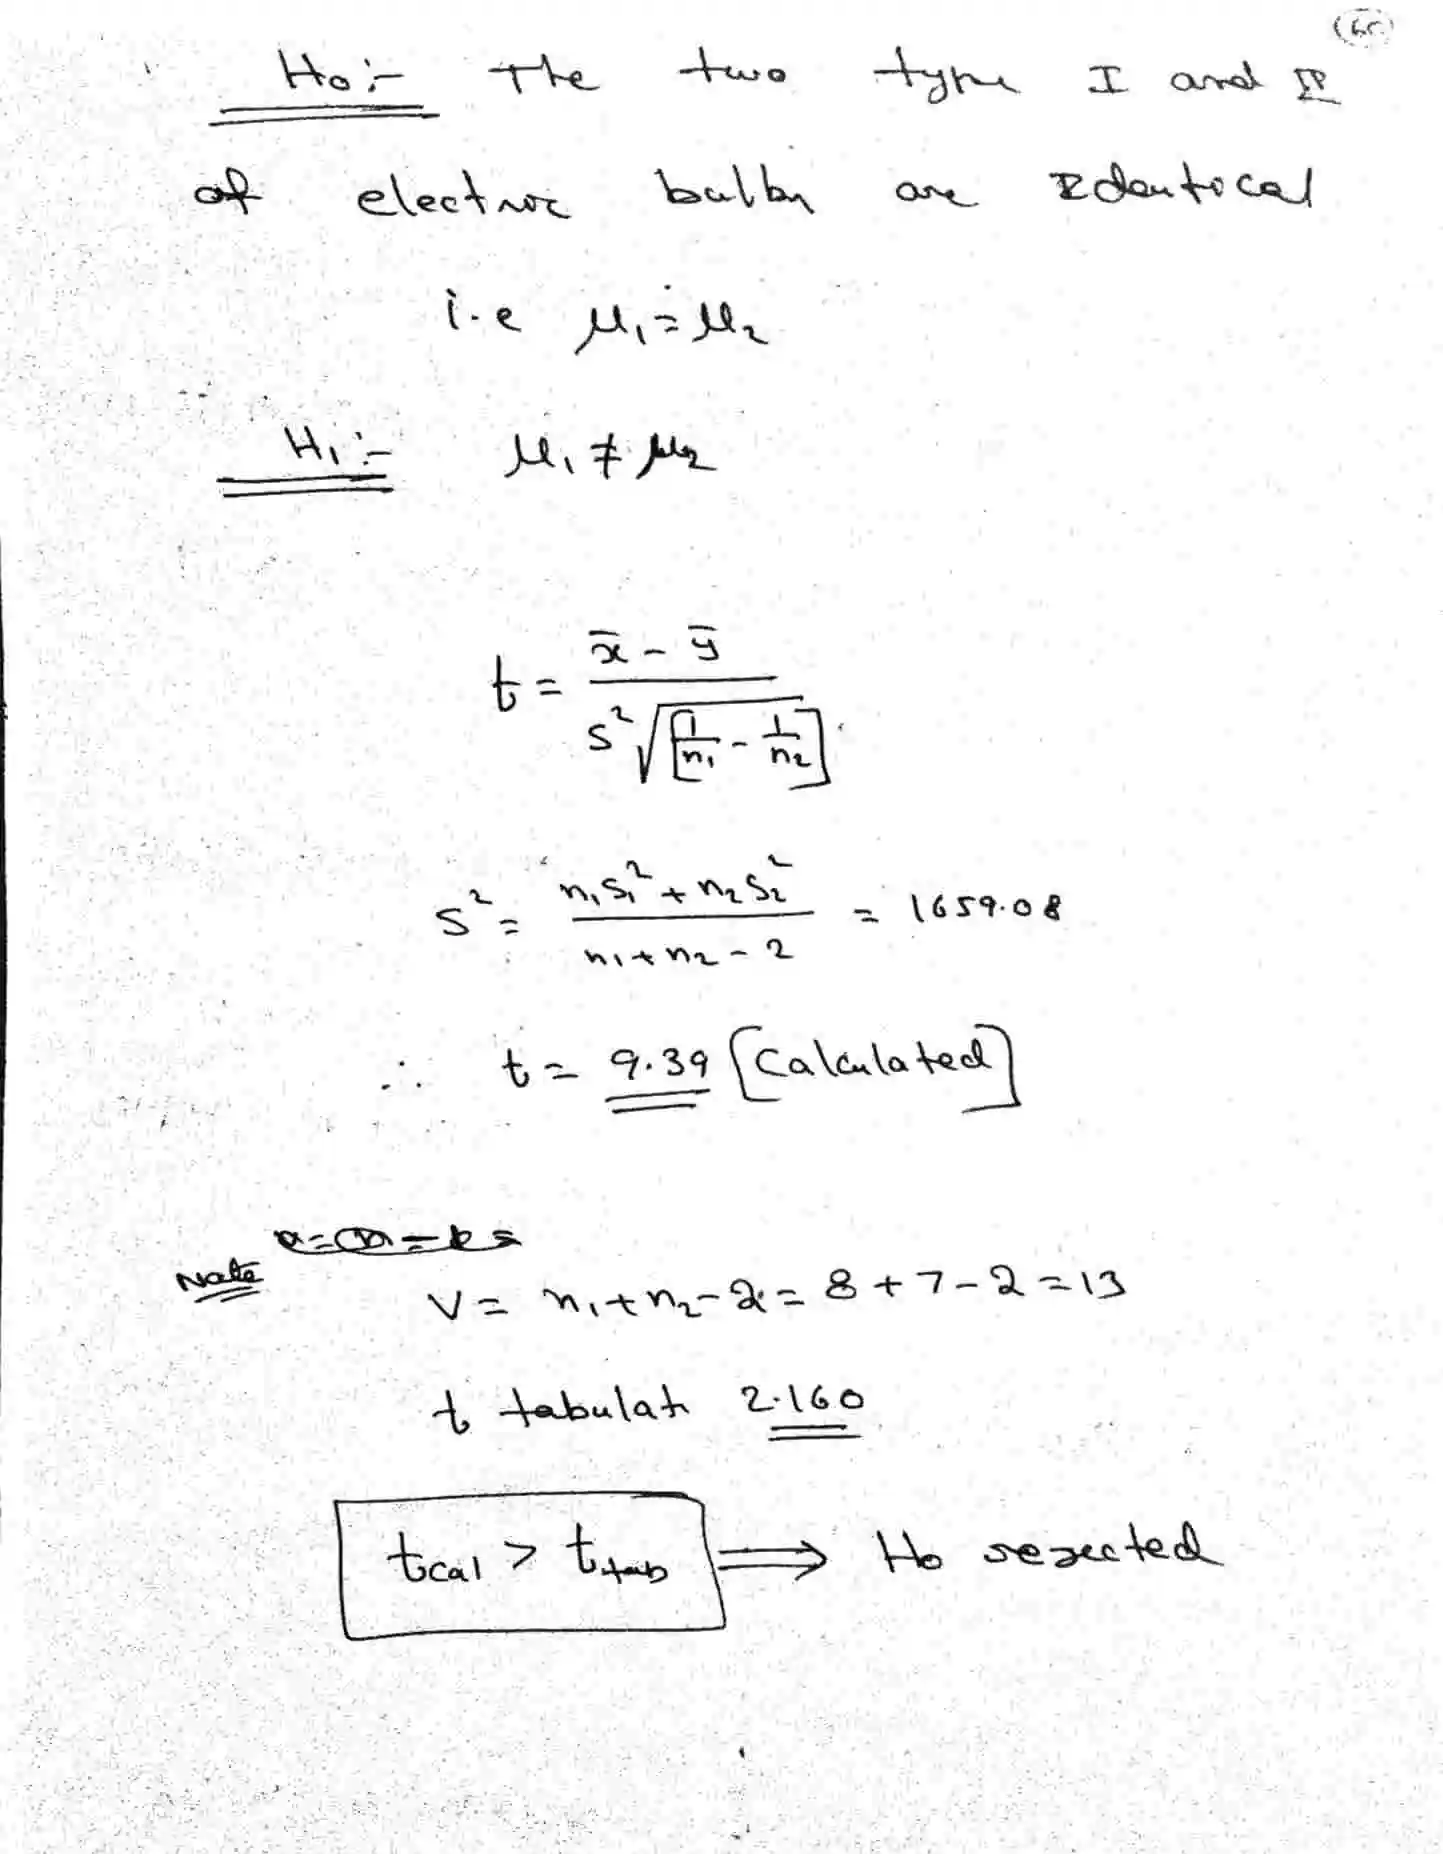 H₀:- The two type I and II
of electric bulbs are Identical
i.e μ₁ = μ₂
H₁:- μ₁ ≠ μ₂
t = (x̄ - ȳ) / (S² √[1/n₁ - 1/n₂])
S² = (n₁s₁² + n₂s₂²) / (n₁ + n₂ - 2) = 1659.08
∴ t = 9.39 [Calculated]
Note
ν = n₁ + n₂ - 2 = 8 + 7 - 2 = 13
t tabulat 2.160
tcal > ttab ⟹ H₀ rejected